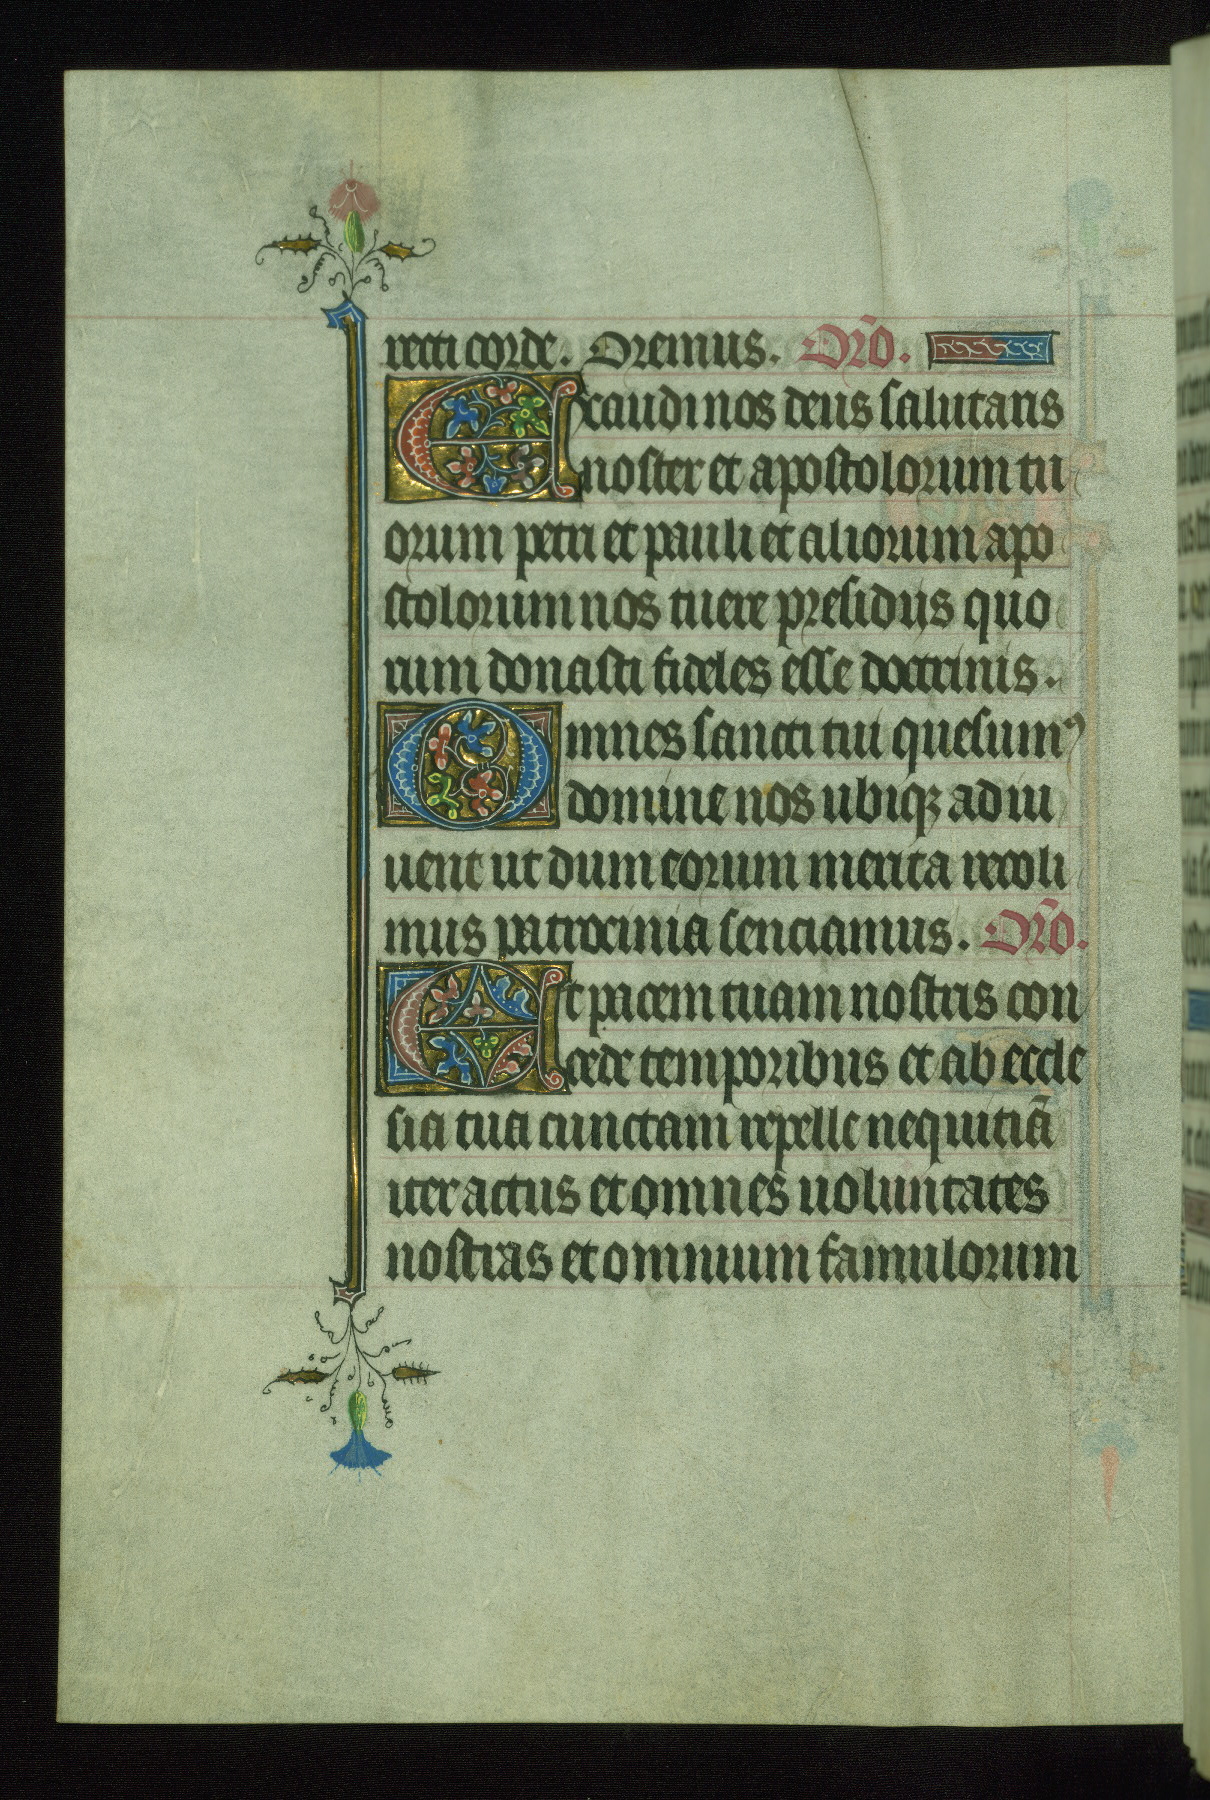 recti corde. Oremus. Oro̅.
Exaudi nos deus salutaris
noster et apostolorum tu
orum petri et pauli et aliorum apo
stolorum nos tuere presidiis quo
rum donasti fideles esse doctrinis.
Omnes sancti tui quesumꝰ
domine nos ubiqꝫ ad iu
uent ut dum eorum merita recoli
mus patrocinia senciamus. Oro̅.
Et pacem tuam nostris con
cede temporibus et ab eccle
sia tua cunctam repelle nequitiā
iter actus et omnes uoluntates
nostras et omnium famulorum